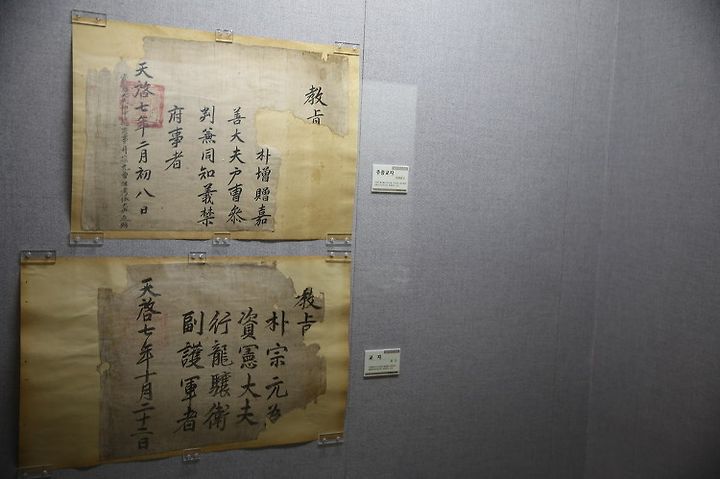 教旨
朴增贈嘉
善大夫戶曹參
判兼同知義禁
府事者
天啓七年二月初八日
증직교지
教旨
朴宗元為
資憲大夫
行龍驤衛
副護軍者
天啓七年十月二十二日
교지